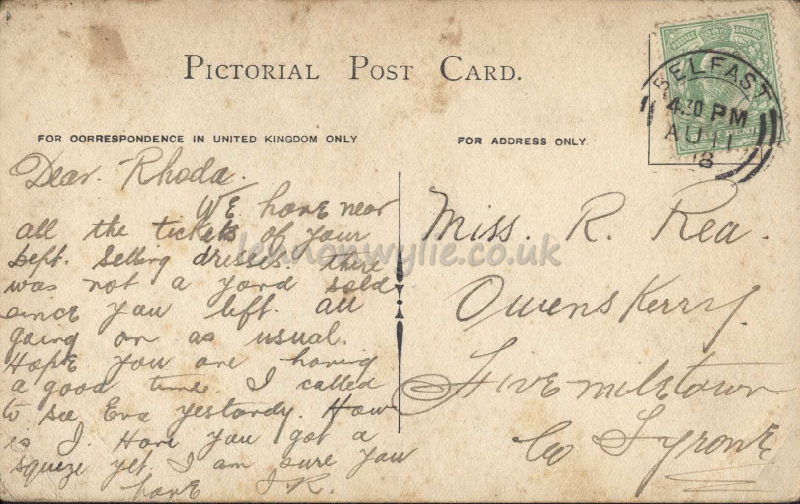 PICTORIAL POST CARD.
FOR CORRESPONDENCE IN UNITED KINGDOM ONLY
FOR ADDRESS ONLY
BELFAST
4.30 PM
AU 11
08
Dear. Rhoda.
WE have near
all the tickets of your
Dept. Selling dresses. There
was not a yard sold
since you left. all
going on as usual.
Hope you are having
a good time. I called
to see Eva yestardy. How
is J. Have you got a
squeze yet. I am sure you
have J.R.
Miss. R. Rea.
Owenskerry.
Fivemiletown
Co Tyrone
lennonwylie.co.uk